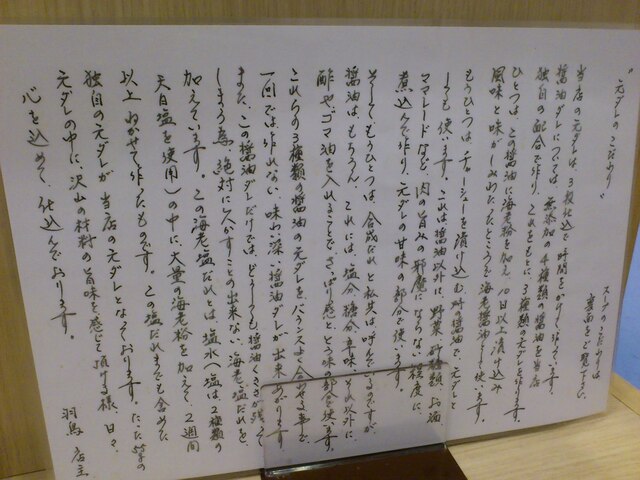 "元ダレのこだわり"
スープのこだわりは
裏面をご覧下さい
当店の元ダレは、3段仕込で時間をかけて作ります。
醤油ダレについては、無添加の4種類の醤油を当店
独自の配合で作り、これをもとに、3種類の元ダレを作ります。
ひとつは、この醤油に海老粉を加え、10日以上漬け込み
風味と味がしみわたったところを海老醤油として使います。
もうひとつは、チャーシューを漬け込む時の醤油で、元ダレと
しても使います。これは醤油以外に、野菜、お酒
ママレードなど、肉の旨みの邪魔にならない程度に
煮込んで作り、元ダレの甘味の部分で使います。
そして、もうひとつは、合成だれと私共は呼んでいますが
醤油はもちろん、これには、塩分、糖分、辛味、それ以外に、
酢や、ゴマ油を入れます。ここでさっぱり感と、とろ味の部分を使います。
これらの3種類の醤油の元ダレを、バランスよく合わせる事で
一回では作れない味わい深い醤油ダレが出来あがります。
また、この醤油ダレだけでは、どうしても醤油くささが残って
しまう為、絶対に欠かすことの出来ない、海老塩だれを、
加えています。この海老塩だれとは、塩水(塩は2種類の
天日塩を使用)の中に、大量の海老粉を加えて、2週間
以上ねかせて作ったものです。この塩だれまでも含めた
独自の元ダレが、当店の元ダレとなっております。ただ
元ダレの中に、沢山の材料の旨味を感じて頂ける様、日々、
心を込めて、仕込んでおります。
羽鳥 店主